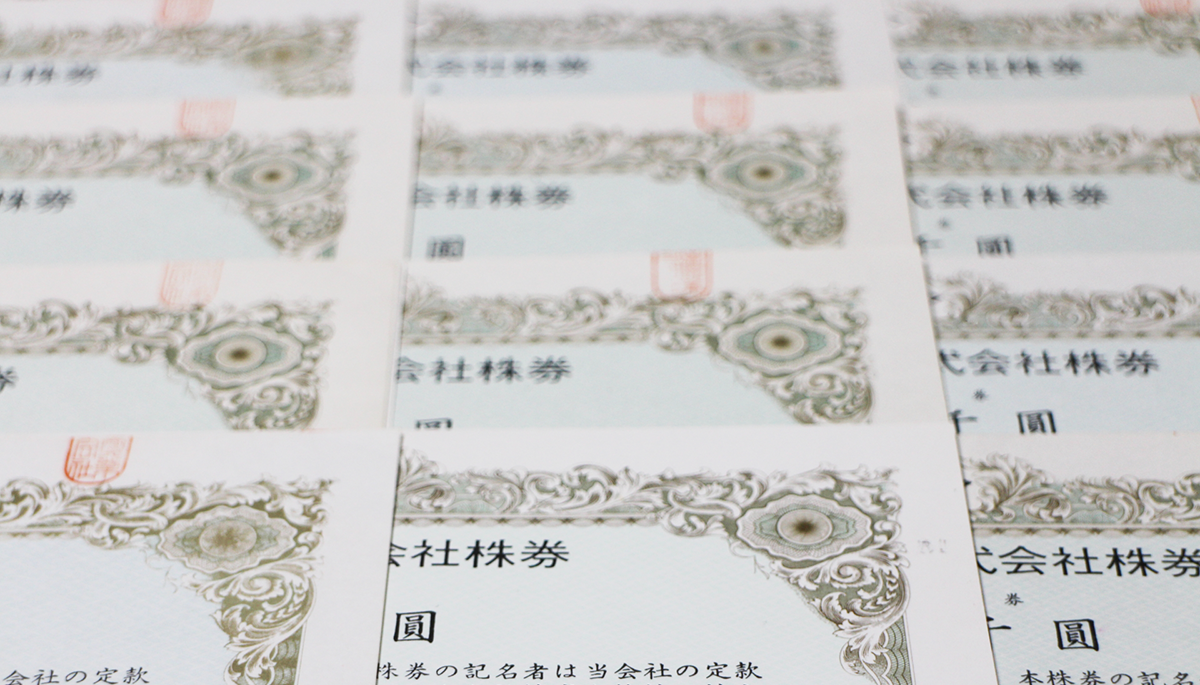 社株券
会社株券
式会社株券
株券
会社株券
式会社株券
圓
圓
券
会社株券
式会社株券
券
圓
千 圓
会社株券
式会社株券
券
圓
圓
会社の定款
株券の記名者は当会社の定款
本株券の記名